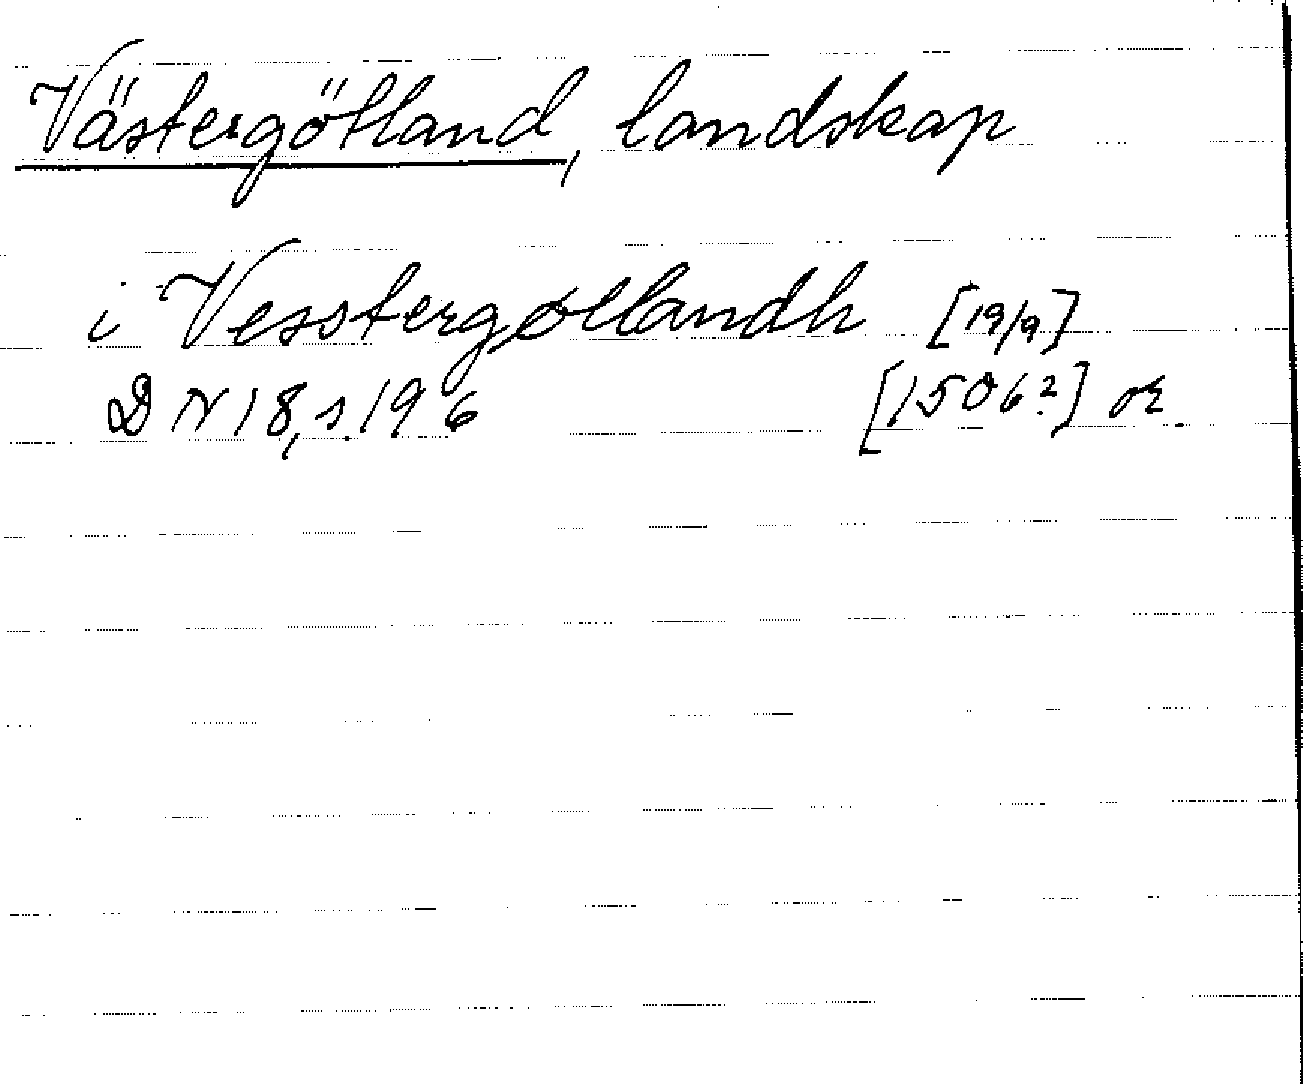 Västergötland, landskap
i Vesstergøtlandh [19/9]
DN 18, s. 196 [1506?] or.